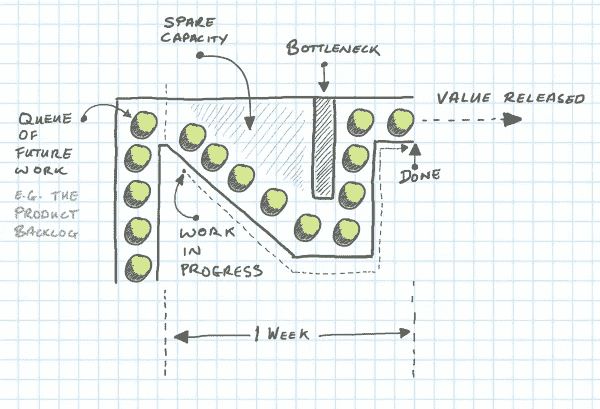 SPARE
CAPACITY
BOTTLENECK
VALUE RELEASED
QUEUE
OF
FUTURE
WORK
E.G. THE
PRODUCT
BACKLOG
DONE
WORK
IN
PROGRESS
1 WEEK